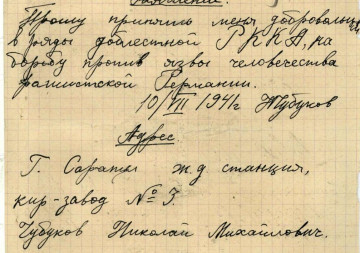 Заявление.
Прошу принять меня добровольцем
в ряды доблестной РККА, на
борьбу против язвы человечества
фашистской Германии.
10/VII 1941г Чубуков
Адрес.
Г. Сараты ж.д станция,
кир-завод №3.
Чубуков Николай Михайлович.